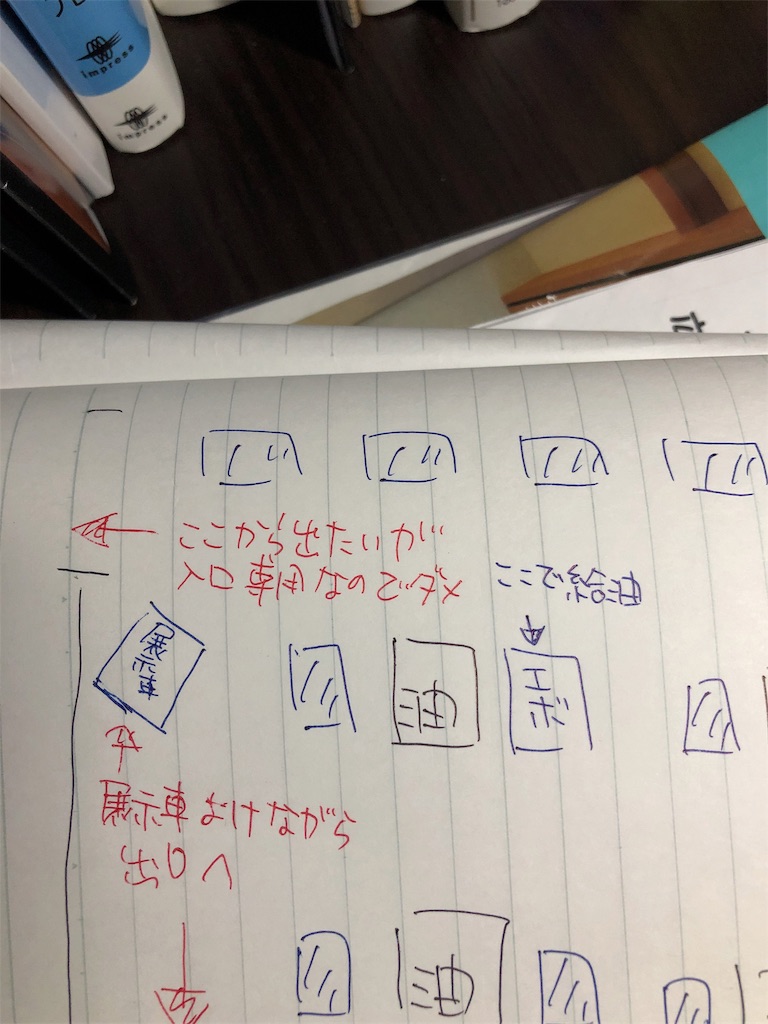 impress
impress
ここから出たいが
入口専用なのでダメ
ここで給油
展示車
油
エボ
展示車よけながら
出口へ
油